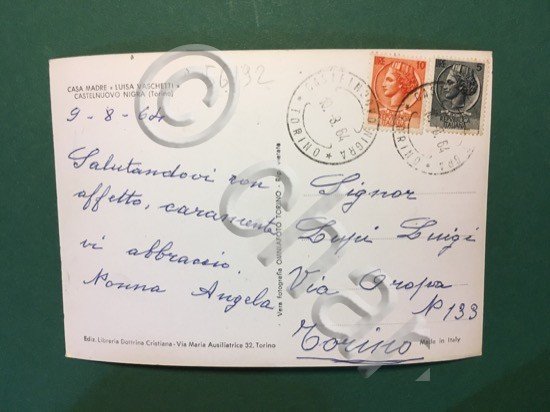 CASA MADRE « LUISA VASCHETTI »
CASTELNUOVO NIGRA (Torino)
9-8-64
Salutandovi con
affetto, caramente
vi abbraccio.
Nonna Angela
Ediz. Libreria Dottrina Cristiana - Via Maria Ausiliatrice 32, Torino
Vera fotografia OMNIAFOTO TORINO - Rip. vietata
CASTELNUOVO NIGRA * TORINO *
8.64
Signor
Lupi Luigi
Via Oropa
N 133
Torino
Made in Italy